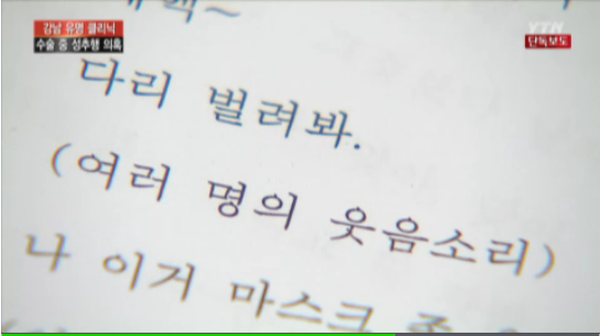 강남 유명 클리닉
수술 중 성추행 의혹
YTN
단독보도
다리 벌려봐.
(여러 명의 웃음소리)
나 이거 마스크